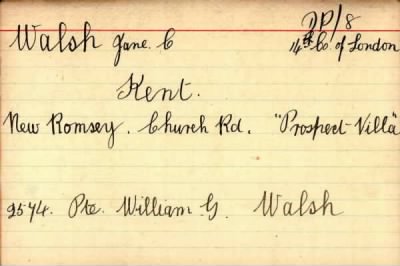 DP/8
Walsh Jane. C 14th Co. of London
Kent.
New Romsey. Church Rd. "Prospect Villa"
9574. Pte. William G. Walsh